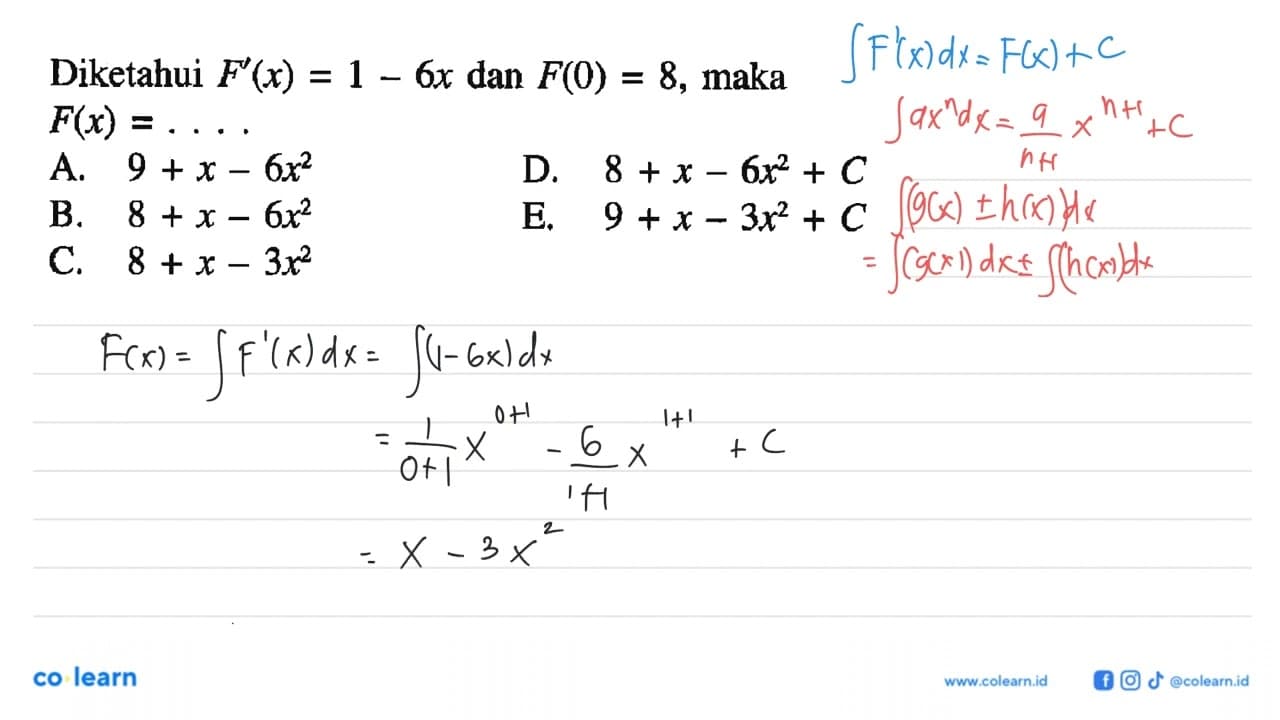 Diketahui F'(x) = 1 – 6x dan F(0) = 8, maka
F(x) = . . . .
A. 9 + x – 6x²
B. 8 + x – 6x²
C. 8 + x – 3x²
D. 8 + x – 6x² + C
E. 9 + x – 3x² + C
∫F'(x)dx = F(x) + C
∫axⁿdx = a/(n+1) x^(n+1) + C
∫(g(x) ± h(x))dx
= ∫(g(x))dx ± ∫(h(x))dx
F(x) = ∫F'(x)dx = ∫(1-6x)dx
= 1/(0+1) x^(0+1) - 6/(1+1) x^(1+1) + C
= x - 3x²
co learn
www.colearn.id
@colearn.id